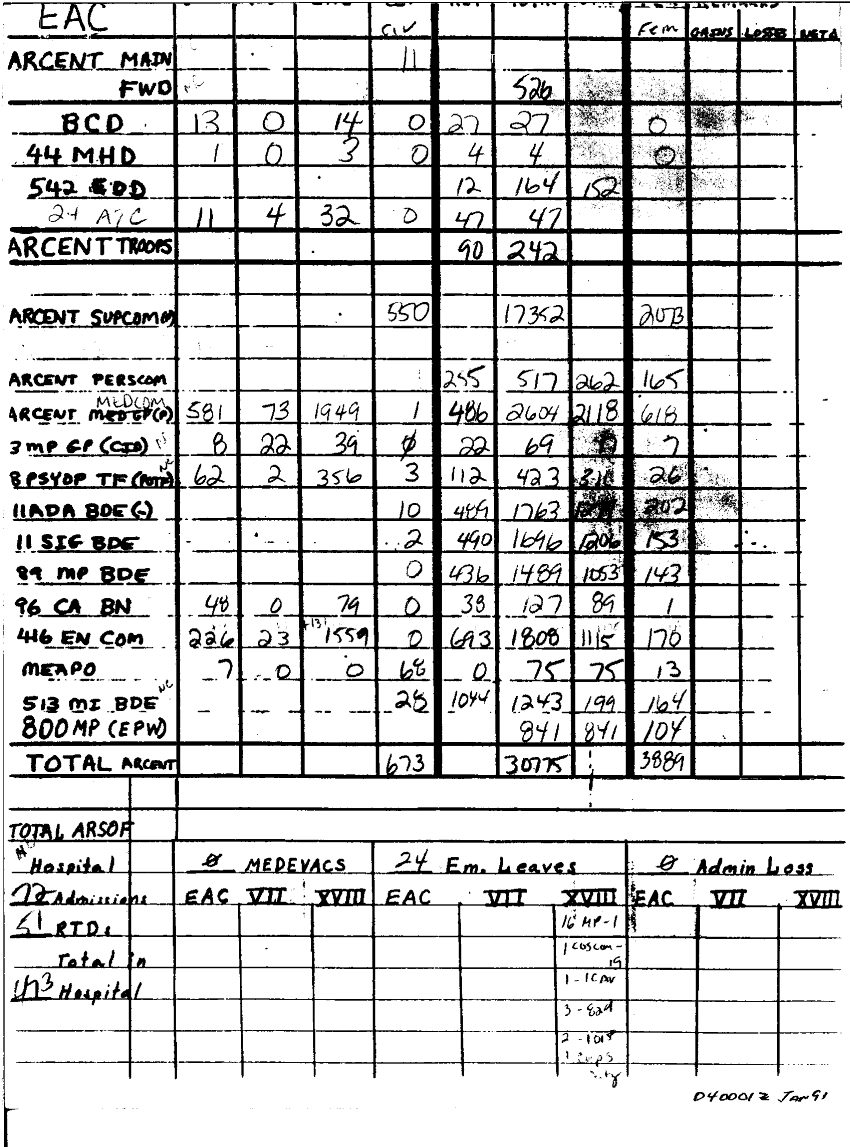 EAC
CIV Fem GAINS LOSSES
ARCENT MAIN 11
FWD 526
BCD 13 0 14 0 27 27 0
44 MHD 1 0 3 0 4 4 0
542 EOD 12 164 152
24 ATC 11 4 32 0 47 47
ARCENT TROOPS 90 242
ARCENT SUPCOM 550 17352
ARCENT PERSCOM 255 517 262 165
MEDCOM
ARCENT MED GP(P) 581 73 1949 1 486 2604 2118 618
3 MP GP (CID) 8 22 39 0 22 69 7
8 PSYOP TF 62 2 356 3 112 423 26
11 ADA BDE (-) 10 489 1763 202
11 SIG BDE 2 490 1696 1206 153
89 MP BDE 0 436 1489 1053 143
96 CA BN 48 0 79 0 38 127 89 1
416 EN COM 226 23 +131 1559 0 693 1808 1115 170
MEAPO 7 0 0 68 0 75 75 13
513 MI BDE NC 28 1044 1243 199 164
800 MP (EPW) 841 841 104
TOTAL ARCENT 673 30775 3889
TOTAL ARSOF
Hospital 0 MEDEVACS 24 Em. Leaves 0 Admin Loss
72 Admissions EAC VII XVIII EAC VII XVIII EAC VII XVIII
51 RTDs 16 MP-1
Total In 1 COSCOM-
19
Hospital 1 - 1CAV
3 - 82d
2 - 101s
D400012 Jan 91